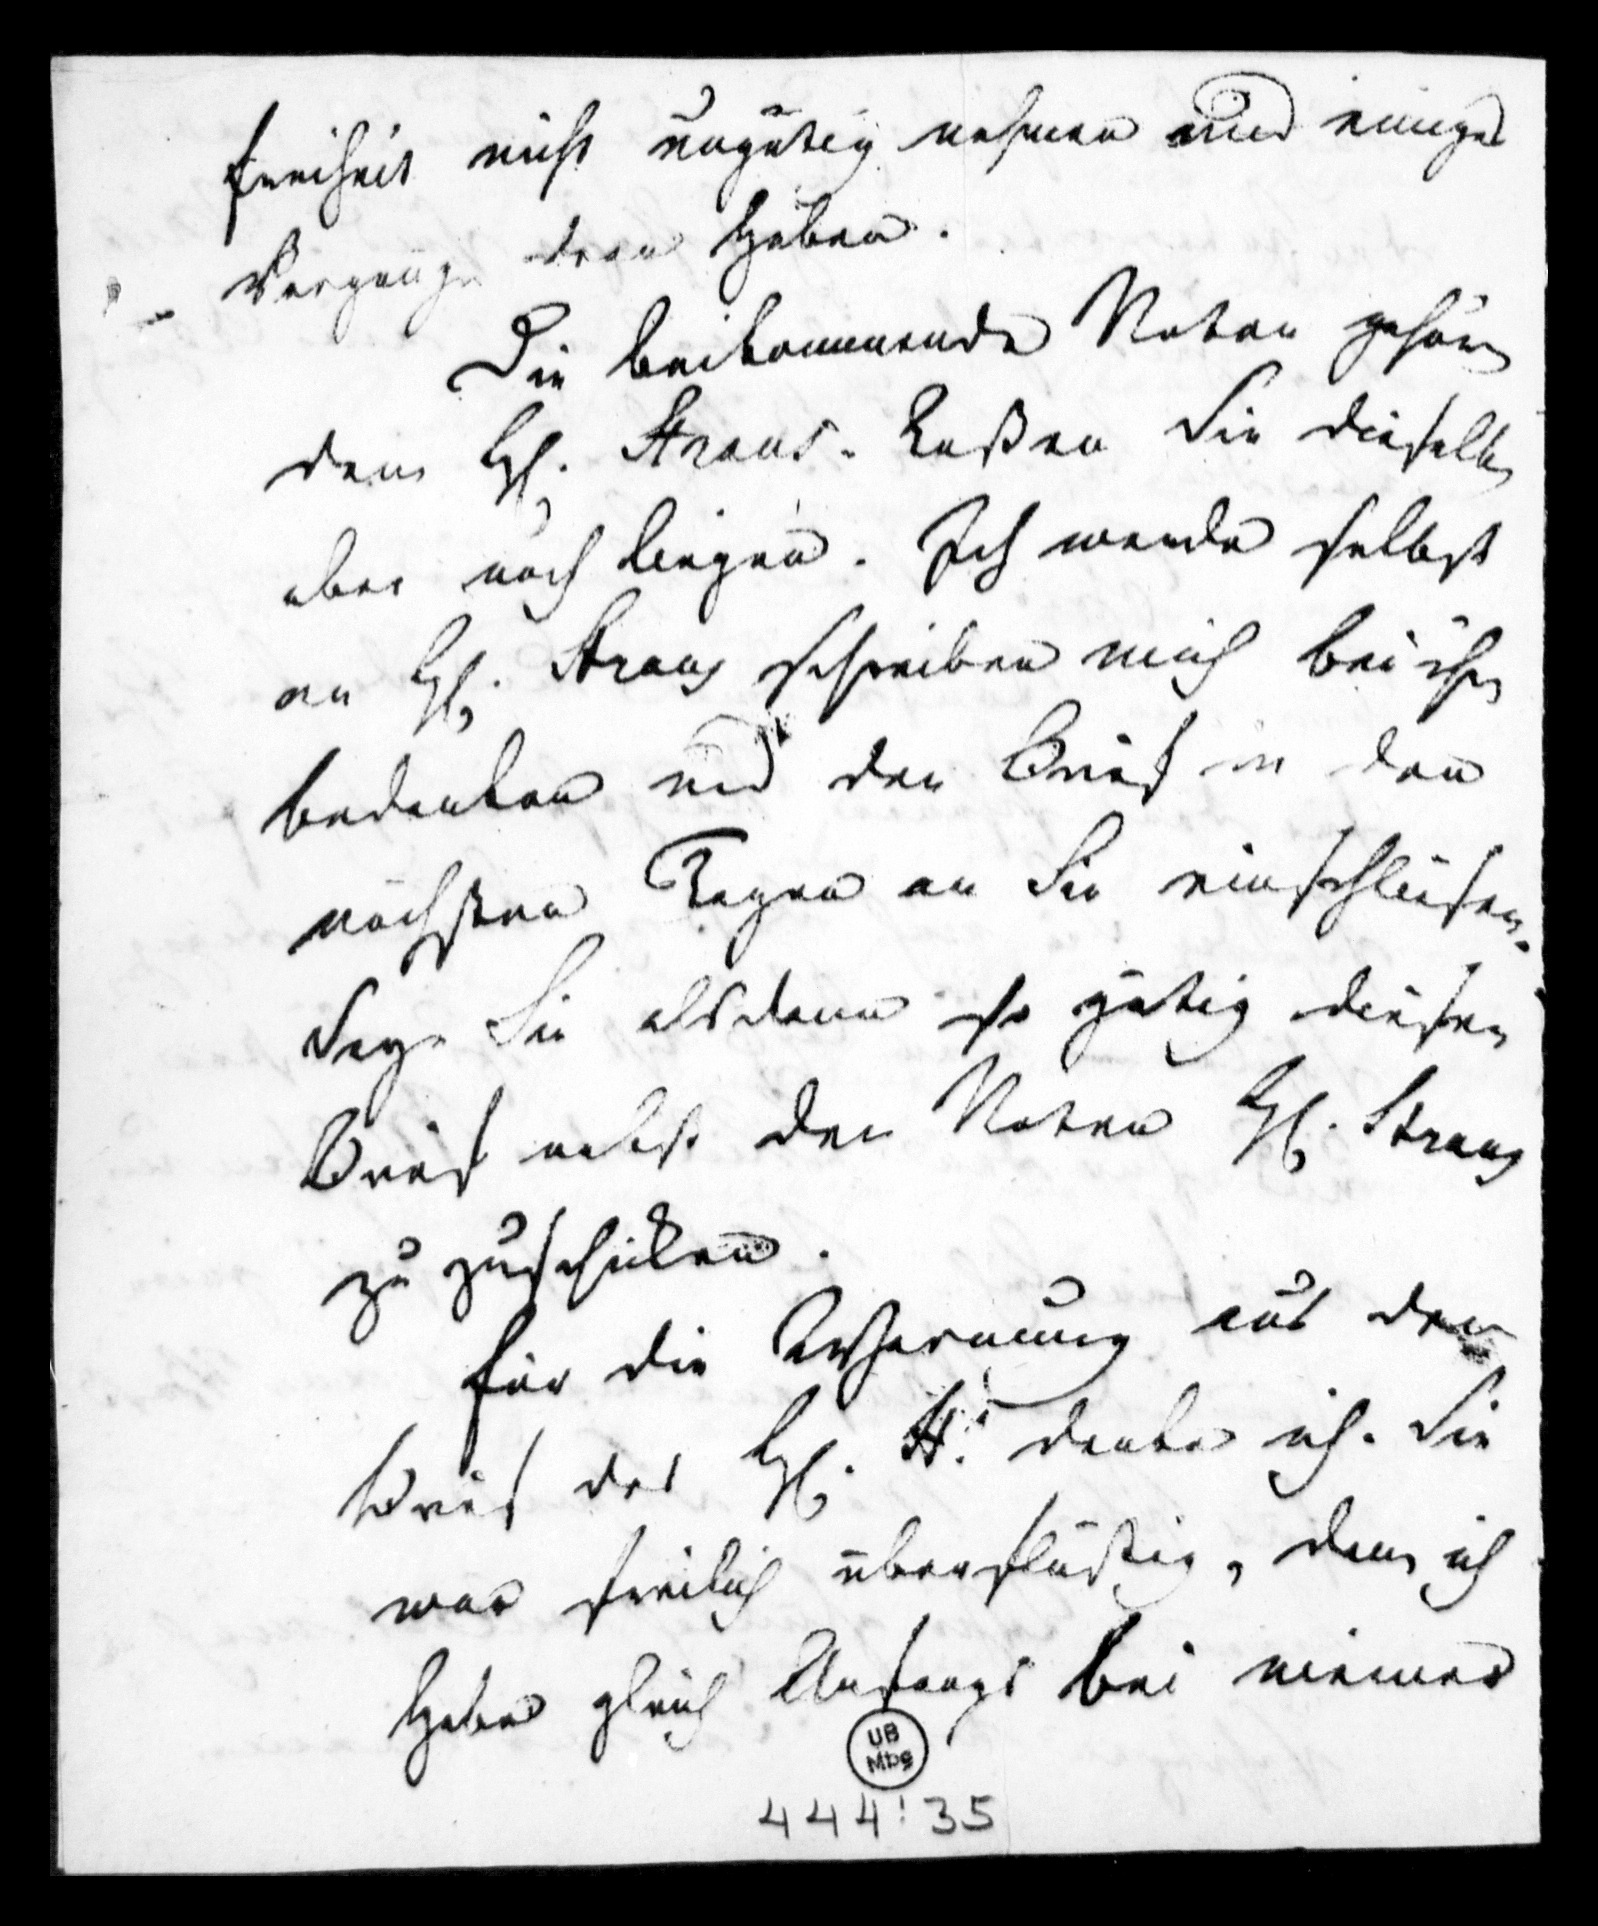 Freiheit nicht ungütig nehmen und einiges
Vergnüge dran haben.
Die beikommende Noten gehören
dem H. Straus. Laßen Sie dieselben
aber noch liegen. Ich werde selbst
an H. Straus schreiben mich bei ihm
bedanken und den Brief in den
nächsten Tagen an Sie einschliesen.
Seyn Sie alsdann so gütig diesen
Brief nebst den Noten H. Straus
zu zuschicken.
Für die Warnung aus dem
Brief des H. St. danke ich. Sie
war freilich überflüßig, denn ich
habe gleich Anfangs bei meiner
UB
Mbg
444:35